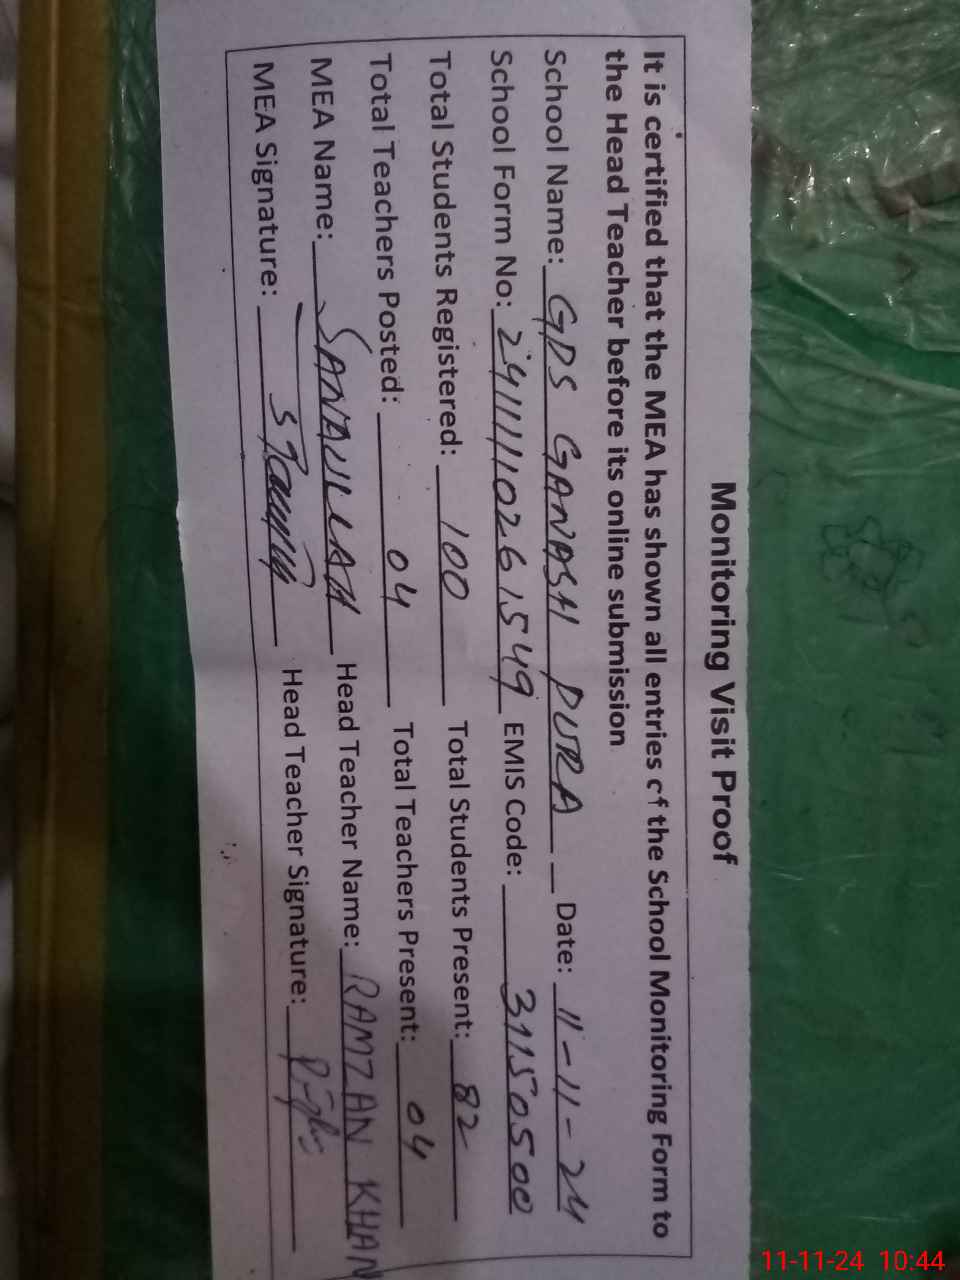 Monitoring Visit Proof
It is certified that the MEA has shown all entries of the School Monitoring Form to
the Head Teacher before its online submission
School Name: GPS GANASH PURA Date: 11-11-24
School Form No: 24111110261549 EMIS Code: 31150500
Total Students Registered: 100 Total Students Present: 82
Total Teachers Posted: 04 Total Teachers Present: 04
MEA Name: SANAULLAH Head Teacher Name: RAMZAN KHAN
MEA Signature: Head Teacher Signature:
11-11-24 10:44